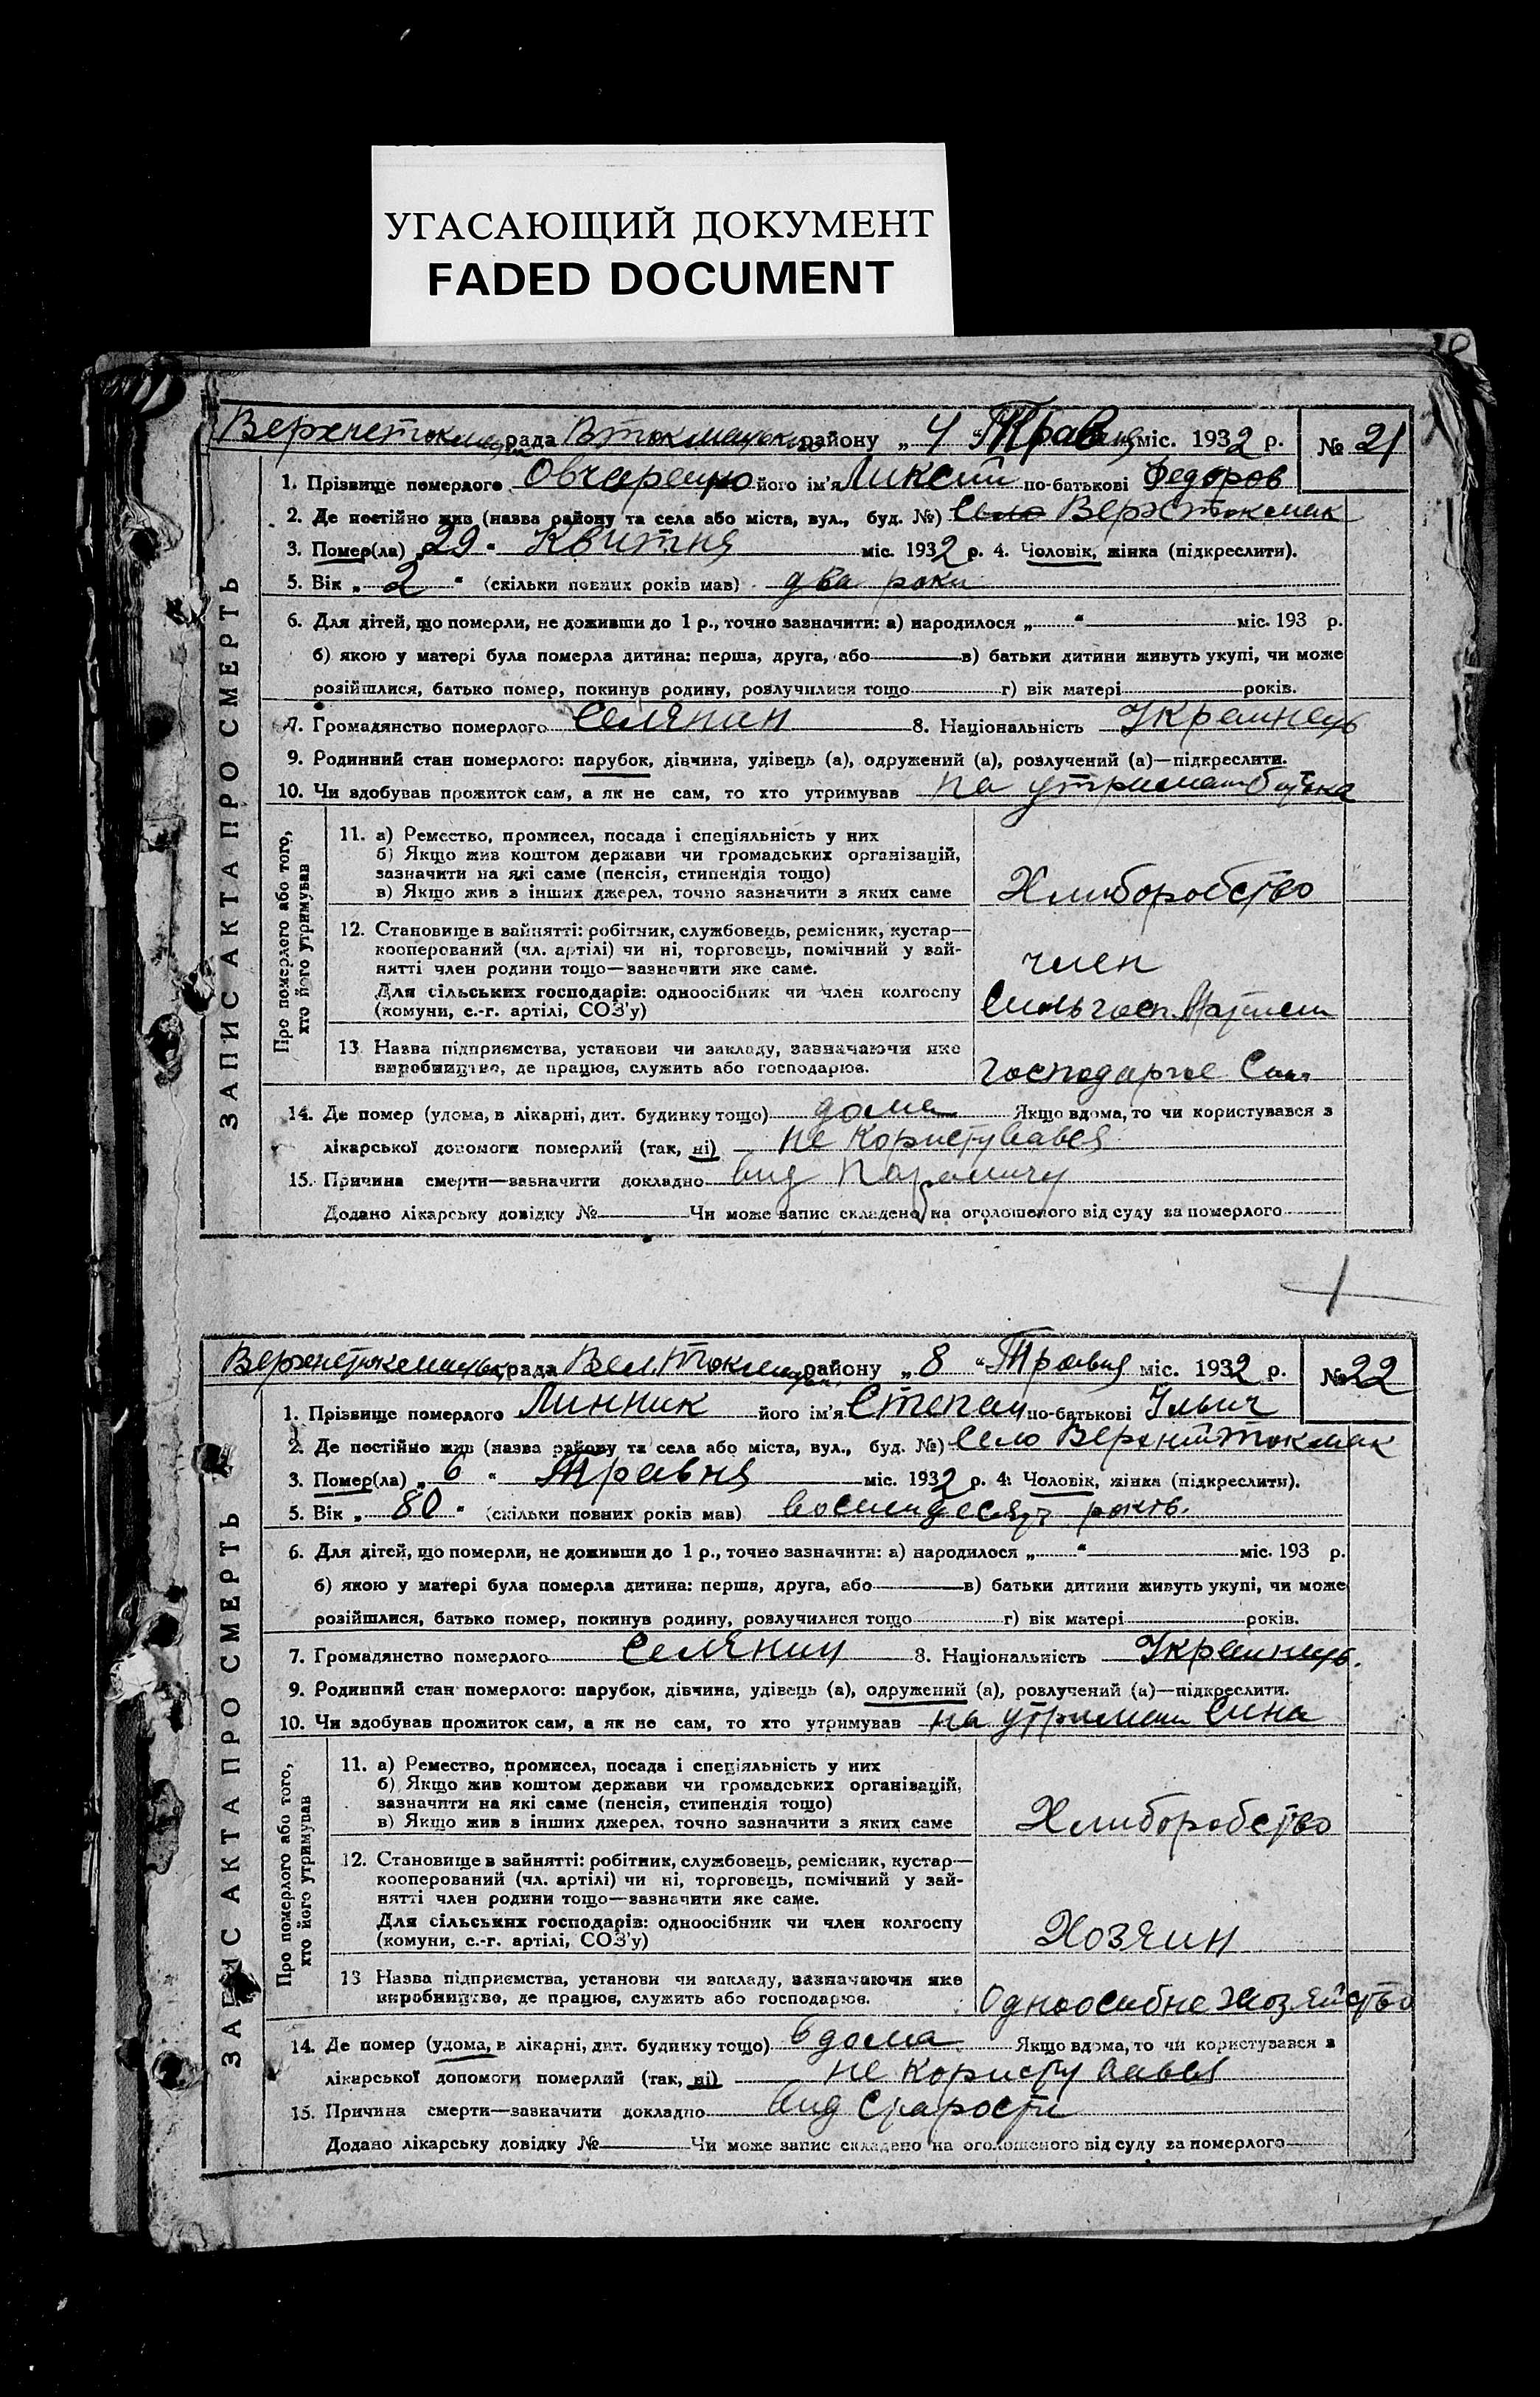 УГАСАЮЩИЙ ДОКУМЕНТ
FADED DOCUMENT
рада Втокмацького району „ 4 “ Травня міс. 1932 р. № 21
1. Прізвище померлого Овчаренко його ім'я Ликсий по-батькові Федоров
2. Де постійно жив (назва району та села або міста, вул., буд. №) Село Верхтокмак
3. Помер(ла) „ 29 “ Квитня міс. 1932 р. 4. Чоловік, жінка (підкреслити).
5. Вік „ 2 “ (скільки повних років мав) два роки
6. Для дітей, що померли, не доживши до 1 р., точно зазначити: а) народилося „ “ міс. 193 р.
б) якою у матері була померла дитина: перша, друга, або в) батьки дитини живуть укупі, чи може
розійшлися, батько помер, покинув родину, розлучилися тощо г) вік матері років.
7. Громадянство померлого Селянин 8. Національність Украинець
9. Родинний стан померлого: парубок, дівчина, удівець (а), одружений (а), розлучений (а)—підкреслити.
10. Чи здобував прожиток сам, а як не сам, то хто утримував на утримани батька
ЗАПИС АКТА ПРО СМЕРТЬ
Про померлого або того,
хто його утримував
11. а) Ремество, промисел, посада і спеціяльність у них
б) Якщо жив коштом держави чи громадських організацій,
зазначити на які саме (пенсія, стипендія тощо)
в) Якщо жив з інших джерел, точно зазначити з яких саме
Хлиборобство
12. Становище в зайнятті: робітник, службовець, ремісник, кустар—
кооперований (чл. артілі) чи ні, торговець, помічний у зай-
нятті член родини тощо—зазначити яке саме.
Для сільських господарів: одноосібник чи член колгоспу
(комуни, с.-г. артілі, СОЗ'у)
член
Сильгосп. Артили
13 Назва підприємства, установи чи закладу, зазначаючи яке
виробництво, де працює, служить або господарює.
господарює
14. Де помер (удома, в лікарні, дит. будинку тощо) дома Якщо вдома, то чи користувався з
лікарської допомоги померлий (так, ні) не користувавея
15. Причина смерти—зазначити докладно вид Параличу
Додано лікарську довідку № Чи може запис складено на оголошеного від суду за померлого
рада Вел.Токмацьк. району „ 8 “ Травня міс. 1932 р. № 22
1. Прізвище померлого Линник його ім'я Степан по-батькові Ульич
2. Де постійно жив (назва району та села або міста, вул., буд. №) Село Верхнійтокмак
3. Помер(ла) „ 6 “ Травня міс. 1932 р. 4. Чоловік, жінка (підкреслити).
5. Вік „ 80 “ (скільки повних років мав) восимдесят років.
6. Для дітей, що померли, не доживши до 1 р., точно зазначити: а) народилося „ “ міс. 193 р.
б) якою у матері була померла дитина: перша, друга, або в) батьки дитини живуть укупі, чи може
розійшлися, батько помер, покинув родину, розлучилися тощо г) вік матері років.
7. Громадянство померлого Селянин 8. Національність Украинець.
9. Родинний стан померлого: парубок, дівчина, удівець (а), одружений (а), розлучений (а)—підкреслити.
10. Чи здобував прожиток сам, а як не сам, то хто утримував на утримани Сина
ЗАПИС АКТА ПРО СМЕРТЬ
Про померлого або того,
хто його утримував
11. а) Ремество, промисел, посада і спеціяльність у них
б) Якщо жив коштом держави чи громадських організацій,
зазначити на які саме (пенсія, стипендія тощо)
в) Якщо жив в інших джерел, точно зазначити з яких саме
Хлиборобство
12. Становище в зайнятті: робітник, службовець, ремісник, кустар—
кооперований (чл. артілі) чи ні, торговець, помічний у зай-
нятті член родини тощо—зазначити яке саме.
Для сільських господарів: одноосібник чи член колгоспу
(комуни, с.-г. артілі, СОЗ'у)
Хозяин
13 Назва підприємства, установи чи закладу, зазначаючи яке
виробництво, де працює, служить або господарює.
Одноосибне Хозяйство
14. Де помер (удома, в лікарні, дит. будинку тощо) вдома Якщо вдома, то чи користувався з
лікарської допомоги померлий (так, ні) не користувавея
15. Причина смерти—зазначити докладно вид Старости
Додано лікарську довідку № Чи може запис складено на оголошеного від суду за померлого